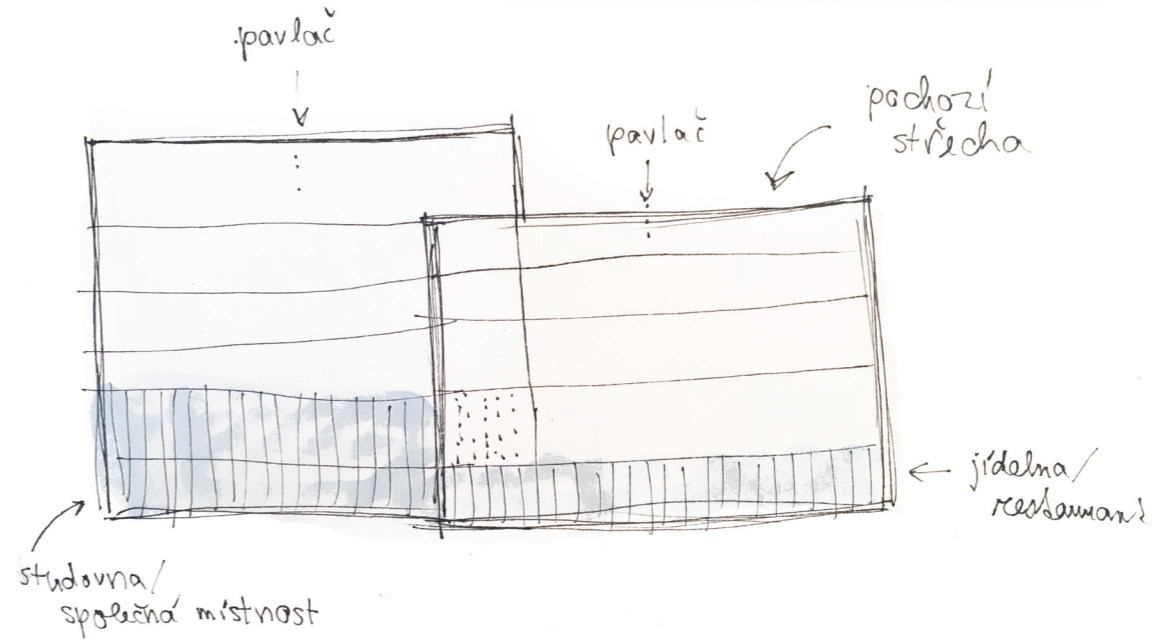 pavlač
pavlač
pochozí
střecha
jídelna/
restaurant
studovna/
společná místnost